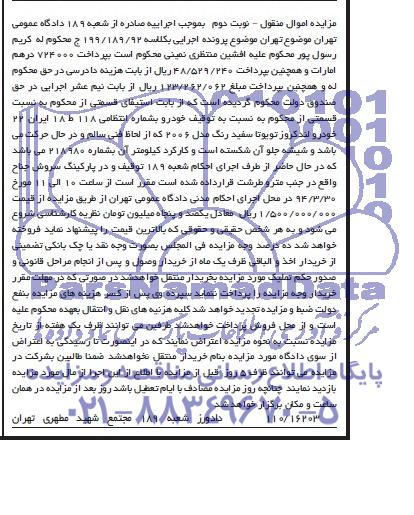 مزایده اموال منقول - نوبت دوم بموجب اجراییه صادره از شعبه ۱۸۹ دادگاه عمومی
تهران موضوع تهران موضوع پرونده اجرایی بکلاسه ۱۹۹/۱۸۹/۹۲ ج محکوم له کریم
رسول پور محکوم علیه افشین منتظری نمینی محکوم است بپرداخت ۷۲۴۰۰۰ درهم
امارات و همچنین بپرداخت ۴۸/۵۲۹/۲۴۰ ریال از بابت هزینه دادرسی در حق محکوم
له و همچنین پرداخت مبلغ ۱۲۳/۲۶۲/۰۶۲ ریال از بابت نیم عشر اجرایی در حق
صندوق دولت محکوم گردیده است که از بابت استیفای قسمتی از محکوم به نسبت
قسمتی از محکوم به نسبت به توقیف خودرو بشماره انتظامی ۱۱۸ ط ۱۸ ایران ۲۲
خودرو لندکروز تویوتا سفید رنگ مدل ۲۰۰۶ که از لحاظ فنی سالم و در حال حرکت می
باشد و شیشه جلو آن شکسته است و کارکرد کیلومتر آن بشماره ۲۱۸۹۸۰ می باشد
که در حال حاضر از طرف اجرای احکام شعبه ۱۸۹ توقیف و در پارکینگ سروش جناح
واقع در جنب مترو طرشت قرارداده شده است مقرر است از ساعت ۱۰ الی ۱۱ مورخ
۹۴/۳/۳۰ در محل اجرای احکام مدنی دادگاه عمومی تهران از طریق مزایده از قیمت
۱/۵۰۰/۰۰۰/۰۰۰ ریال معادل یکصد و پنجاه میلیون تومان نظریه کارشناسی شروع
می شود و به هر شخص حقیقی و حقوقی که بالاترین قیمت را پیشنهاد نماید فروخته
خواهد شد ده درصد وجه مزایده فی المجلس بصورت وجه نقد یا چک بانکی تضمینی
از خریدار اخذ و الباقی ظرف یک ماه از خریدار وصول و پس از انجام مراحل قانونی و
صدور حکم تملیک مورد مزایده بخریدار منتقل خواهدشد در صورتی که در مهلت مقرر
خریدار وجه مزایده را پرداخت ننماید سپرده وی پس از کسر هزینه های مزایده بنفع
دولت ضبط و مزایده تجدید خواهد شد کلیه هزینه های نقل و انتقال بعهده محکوم علیه
است و از محل فروش پرداخت خواهدشد طرفین می توانند ظرف یک هفته از تاریخ
مزایده نسبت به نحوه مزایده اعتراض نمایند که در اینصورت تا رسیدگی به اعتراض
از سوی دادگاه مورد مزایده بنام خریدار منتقل نخواهدشد ضمنا طالبین بشرکت در
مزایده می توانند ظرف ۵ روز قبل از مزایده با اطلاع از این اجرا از مال مورد مزایده
بازدید نمایند چنانچه روز مزایده مصادف با ایام تعطیل باشد روز بعد از مزایده در همان
ساعت و مکان برگزار خواهد شد.
۱۱۰/۱۶۲۰۳ دادورز شعبه ۱۸۹ مجتمع شهید مطهری تهران
ParsNamadData
۰۲۱-۸۸۳۴۹۶۷۰-۵